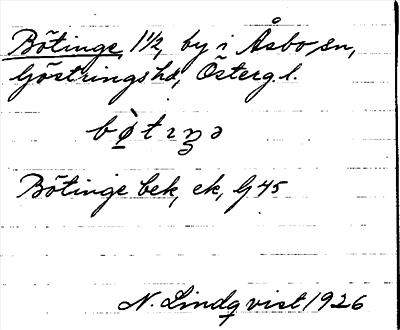 Bötinge, 1 1/2, by i Åsbo sn,
Göstrings hd, Österg. l.
bø̀tɪŋə
Bötinge bek, ek, G 45
N. Lindqvist 1926